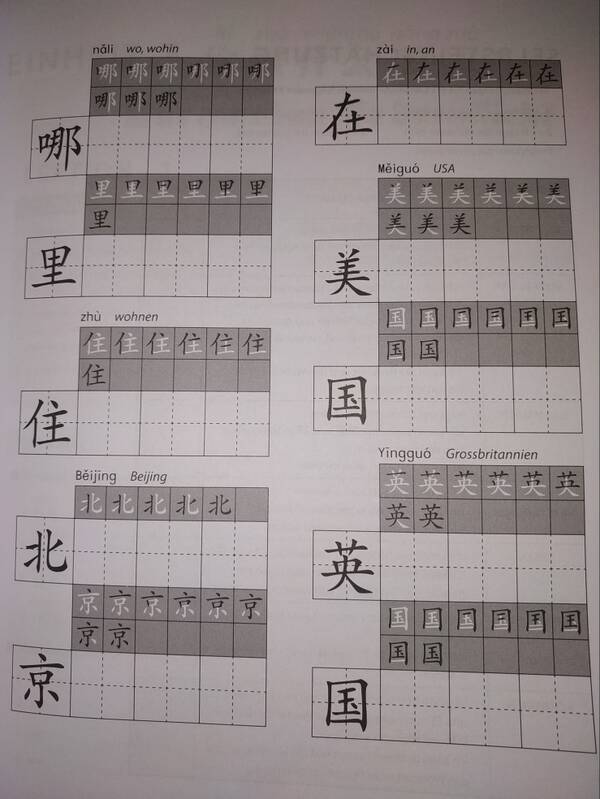 nǎli wo, wohin
哪 哪 哪 哪 哪 哪
哪 哪 哪
哪
里 里 里 里 里 里
里
里
zhù wohnen
住 住 住 住 住 住
住
住
Běijīng Beijing
北 北 北 北 北
北
京 京 京 京 京 京
京 京
京
zài in, an
在 在 在 在 在 在
在
Měiguó USA
美 美 美 美 美 美
美 美 美
美
国 国 国 国 国 国
国 国
国
Yīngguó Grossbritannien
英 英 英 英 英 英
英 英
英
国 国 国 国 国 国
国 国
国